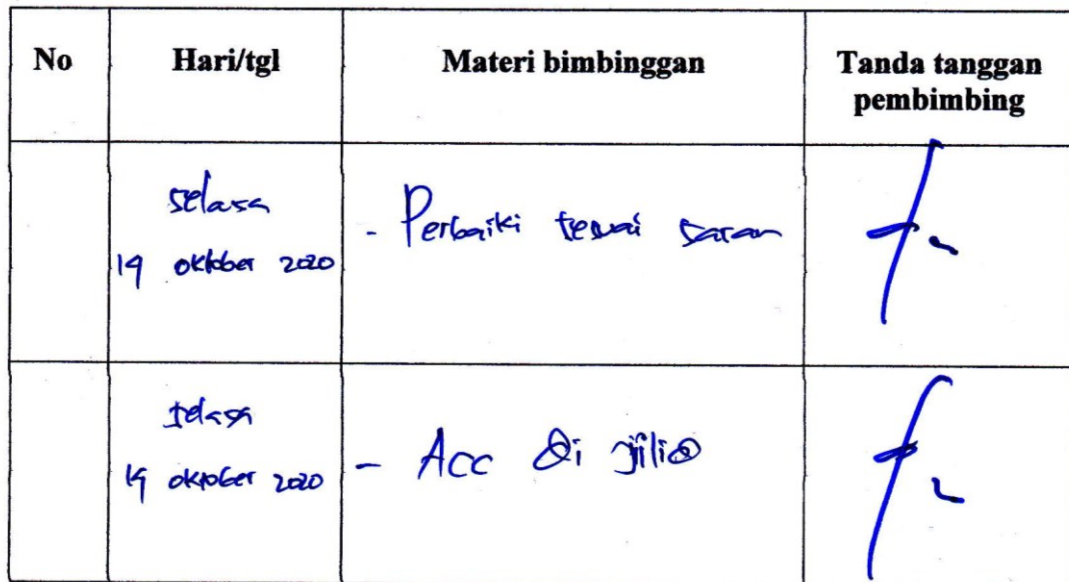 No Hari/tgl Materi bimbinggan Tanda tanggan
pembimbing
selasa
19 oktober 2020
- Perbaiki sesuai saran
selasa
19 oktober 2020
- Acc di jilid